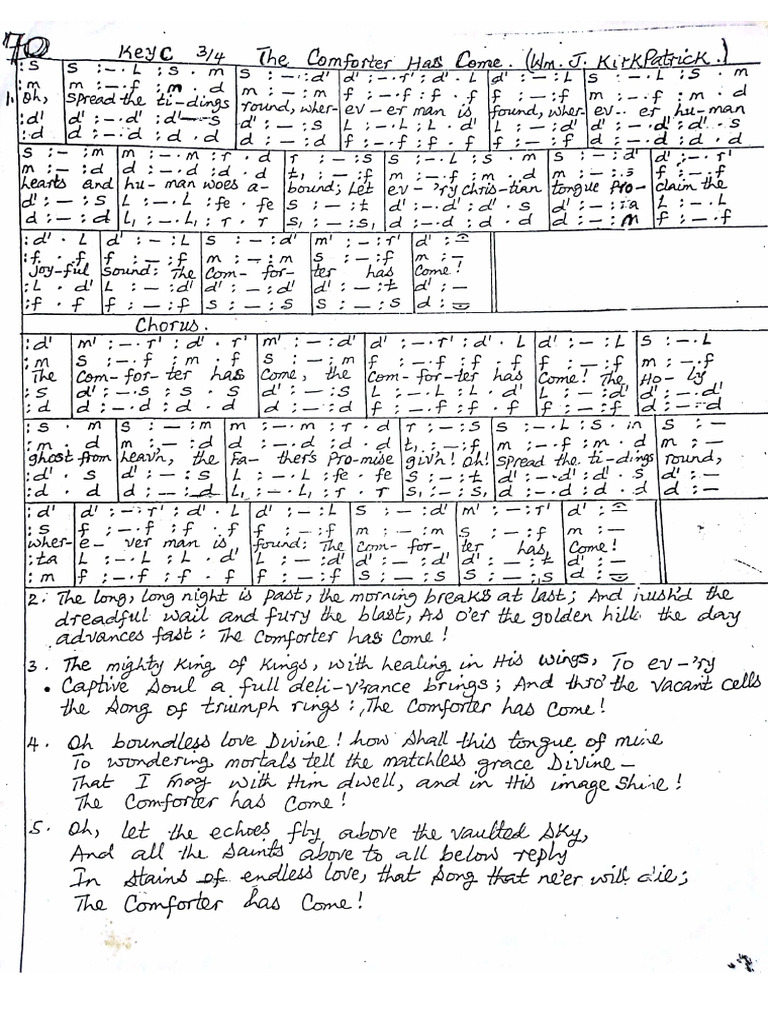 70
Key C 3/4 The Comforter Has Come. (Wm. J. KirkPatrick.)
:s | s :-.L :s .m | s :-:d' | d' :-.r' :d' .L | d' :-:L | s :-.L :s .m
:m | m :-.f :m .d | m :-:m | f :-.f :f .f | f :-:f | m :-.f :m .d
1. Oh, spread the ti-dings round, wher- ev-er man is found, wher- ev-er hu-man
:d' | d' :-.d' :d'-s | d' :-:s | L :-.L :L .d' | L :-:L | d' :-.d' :d' .s
:d | d :-.d :d .d | d :-:d | f :-.f :f .m | f :-:f | d :-.d :d .d
s :-:m | m :-.m :r .d | r :-:s | s :-.L :s .m | s :-:d' | d' :-.r'
m :-:d | d :-.d :d .d | t, :-:f | m :-.f :m .d | m :-:s | f :-.f
hearts and hu-man woes a- bound; Let ev-'ry chris-tian tongue Pro- claim the
d' :-:s | L :-.L :fe .fe | s :-:t | d' :-.d' :d' .s | d' :-:ta | L :-.L
d :-:d | L, :-.L, :r .r | s, :-:s, | d :-.d :d .d | d :-:m | f :-.f
:d' .L | d' :-:L | s :-:d' | m' :-:r' | d' :-
:f .f | f :-:f | m :-:m | s :-:f | m :-
Joy-ful sound: The Com-for- ter has Come!
:L .d' | L :-:d' | d' :-:d' | d' :-:t | d' :-
:f .f | f :-:f | s :-:s | s :-:s | d :-
Chorus.
:d' | m' :-.r' :d' .r' | m' :-:d' | d' :-.r' :d' .L | d' :-:L | s :-.L
:m | s :-.f :m .f | s :-:m | f :-.f :f .f | f :-:f | m :-.f
The Com-for-ter has Come, the Com-for-ter has Come! The Ho-ly
:s | d' :-.s :s .s | d' :-:s | L :-.L :L .L | L :-:d' | d' :-.d'
:d | d :-.d :d .d | d :-:d | f :-.f :f .f | f :-:f | d :-.d
:s .m | s :-:m | m :-.m :r .d | r :-:s | s :-.L :s .m | s :-
:m .d | m :-:d | d :-.d :d .d | t, :-:f | m :-.f :m .d | m :-
ghost from heav'n, the Fa-ther's Promise giv'n! Oh! spread the ti-dings round,
:d' .s | d' :-:s | L :-.L :fe .fe | s :-:t | d' :-.d' :d' .s | d' :-
:d .d | d :-:d | L, :-.L, :r .r | s, :-:s, | d :-.d :d .d | d :-
:d' | d' :-.r' :d' .L | d' :-:L | s :-:d' | m' :-:r' | d' :-
:s | f :-.f :f .f | f :-:f | m :-:m | s :-:f | m :-
wher- e-ver man is found: The Com-for- ter has, Come!
:ta | L :-.L :L .d' | L :-:d' | d' :-:d' | d' :-:t | d' :-
:m | f :-.f :f .f | f :-:f | s :-:s | s :-:s | d :-
2. The long, long night is past, the morning breaks at last; And hush'd the
dreadful wail and fury the blast, As o'er the golden hills the day
advances fast: The Comforter has Come!
3. The mighty King of Kings, with healing in His wings, To ev-'ry
Captive Soul a full deli-v'rance brings; And thro' the vacant cells
the Song of triumph rings: The Comforter has Come!
4. Oh boundless love Divine! how Shall this tongue of mine
To wondering mortals tell the matchless grace Divine -
That I may with Him dwell, and in His image Shine!
The Comforter has Come!
5. Oh, let the echoes fly above the vaulted Sky,
And all the Saints above to all below reply
In Stains of endless love, that Song that ne'er will die;
The Comforter has Come!